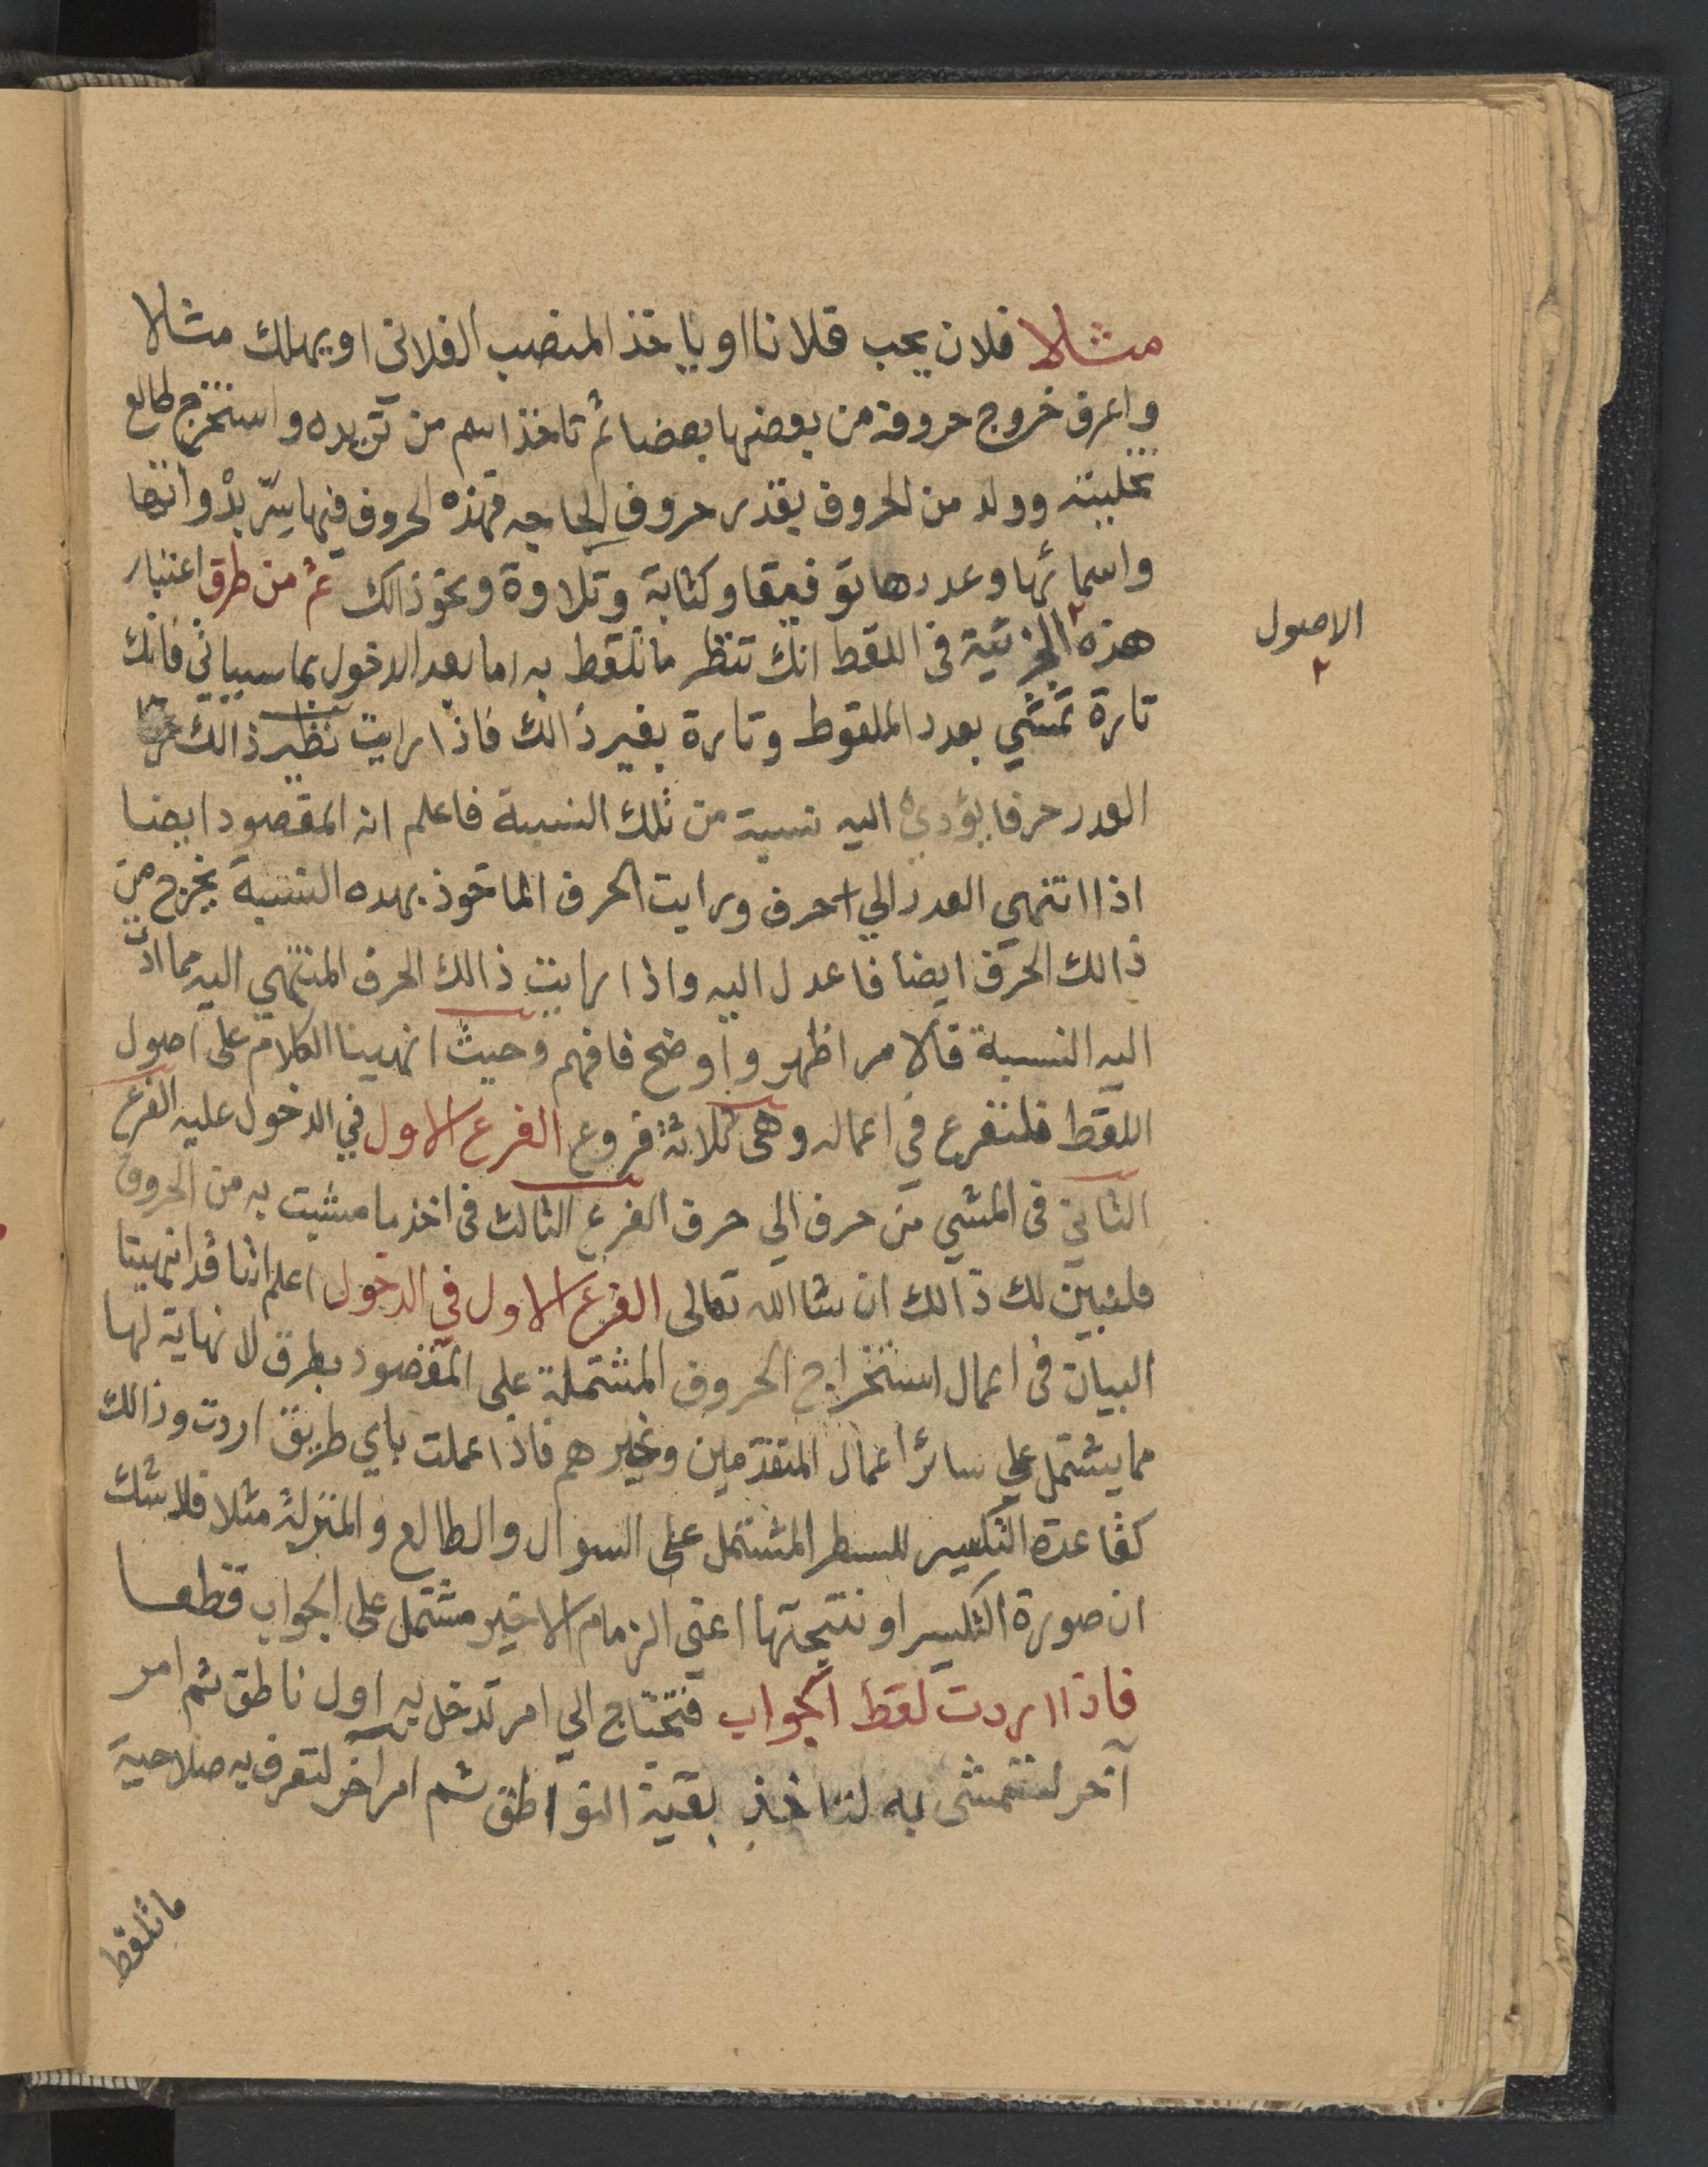 مثلا فلان يحب فلانا او ياخذ المنصب الفلانى او يهلك مثالا
واعرف خروج حروفه من بعضها بعضا ثم تاخذ اسم من تريده واستخرج طالع
وولد من الحروف بقدر حروف الحاجه فهذه الحروف فيها سر بذواتها
واسمائها وعددها توفيقا وكتابة وتلاوة ونحو ذالك ثم من طرق اعتبار
هذه الجزئية فى اللقط انك تنظر ما تلقط به اما بعد الدخول بما سيياتى فانك
تارة تمشي بعدد الملقوط وتارة بغير ذالك فاذا رايت نظير ذالك
العدد حرفا يؤدي اليه نسبة من تلك النسبة فاعلم انه المقصود ايضا
اذا انتهي العدد الي حرف ورايت الحرف الماخوذ بهده النسبة يخرج من
ذالك الحرف ايضا فاعدل اليه واذا رايت ذالك الحرف المنتهي اليه مما ادت
اليه النسبة فالامر اظهر واوضح فافهم وحيث انهينا الكلام على اصول
اللقط فلنفرع في اعماله وهى ثلاثة فروع الفرع الاول في الدخول عليه الفرع
الثاني فى المشي من حرف الي حرف الفرع الثالث فى اخذ ما مشيت به من الحروف
فلنبين لك ذالك ان شا الله تعالى الفرع الاول في الدخول اعلم اننا قد انهينا
البيان فى اعمال استخراج الحروف المشتملة على المقصود بطرق لا نهاية لها
مما يشتمل علي سائر اعمال المتقدمين وغيرهم فاذا عملت باي طريق اردت وذالك
كقاعدة التكسير للسطر المشتمل على السوال والطالع والمنزلة مثلا فلا شك
ان صورة التكسير او نتيجتها اعنى الزمام الاخير مشتمل على الجواب قطعا
فاذا اردت لقط الجواب فتحتاج الي امر تدخل به اول ناطق ثم امر
آخر لتتمشى به لتاخذ بقية النواطق ثم امر آخر لتعرف به صلاحية
ماتلقط
الاصول
٢